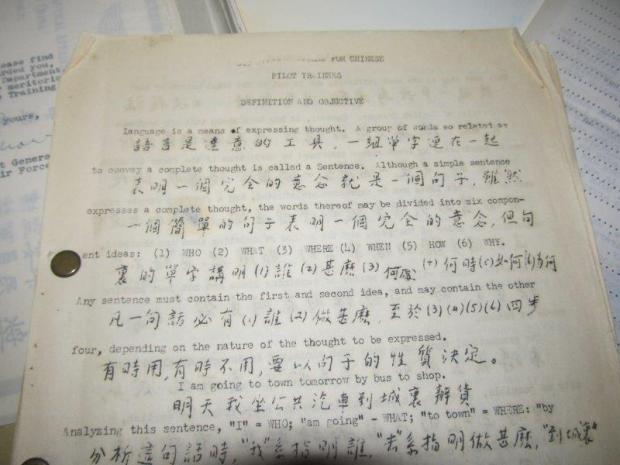 ease find
rded you,
Department
meritorio
Training
yours,
t General
ir Force
FOR CHINESE
PILOT TRAINING
DEFINITION AND OBJECTIVE
Language is a means of expressing thought. A group of words so related as
語言是達意的工具,一組單字連在一起
to convey a complete thought is called a Sentence. Although a simple sentence
表明一個完全的意念就是一個句子,雖然
expresses a complete thought, the words thereof may be divided into six compon-
一個簡單的句子表明一個完全的意念,但句
ent ideas: (1) WHO (2) WHAT (3) WHERE (4) WHEN (5) HOW (6) WHY.
裏的單字講明(1)誰(2)甚麼(3)何處(4)何時(5)如何(6)為何
Any sentence must contain the first and second idea, and may contain the other
凡一句話必有(1)誰(2)做甚麼,至於(3)(4)(5)(6)四步
four, depending on the nature of the thought to be expressed.
有時用,有時不用,要以句子的性質決定。
I am going to town tomorrow by bus to shop.
明天我坐公共汽車到城裏辦貨
Analyzing this sentence, "I" = WHO; "am going" - WHAT; "to town" = WHERE: "by
分析這句話時,"我"系指明誰,"去"系指明做甚麼,"到城裏"